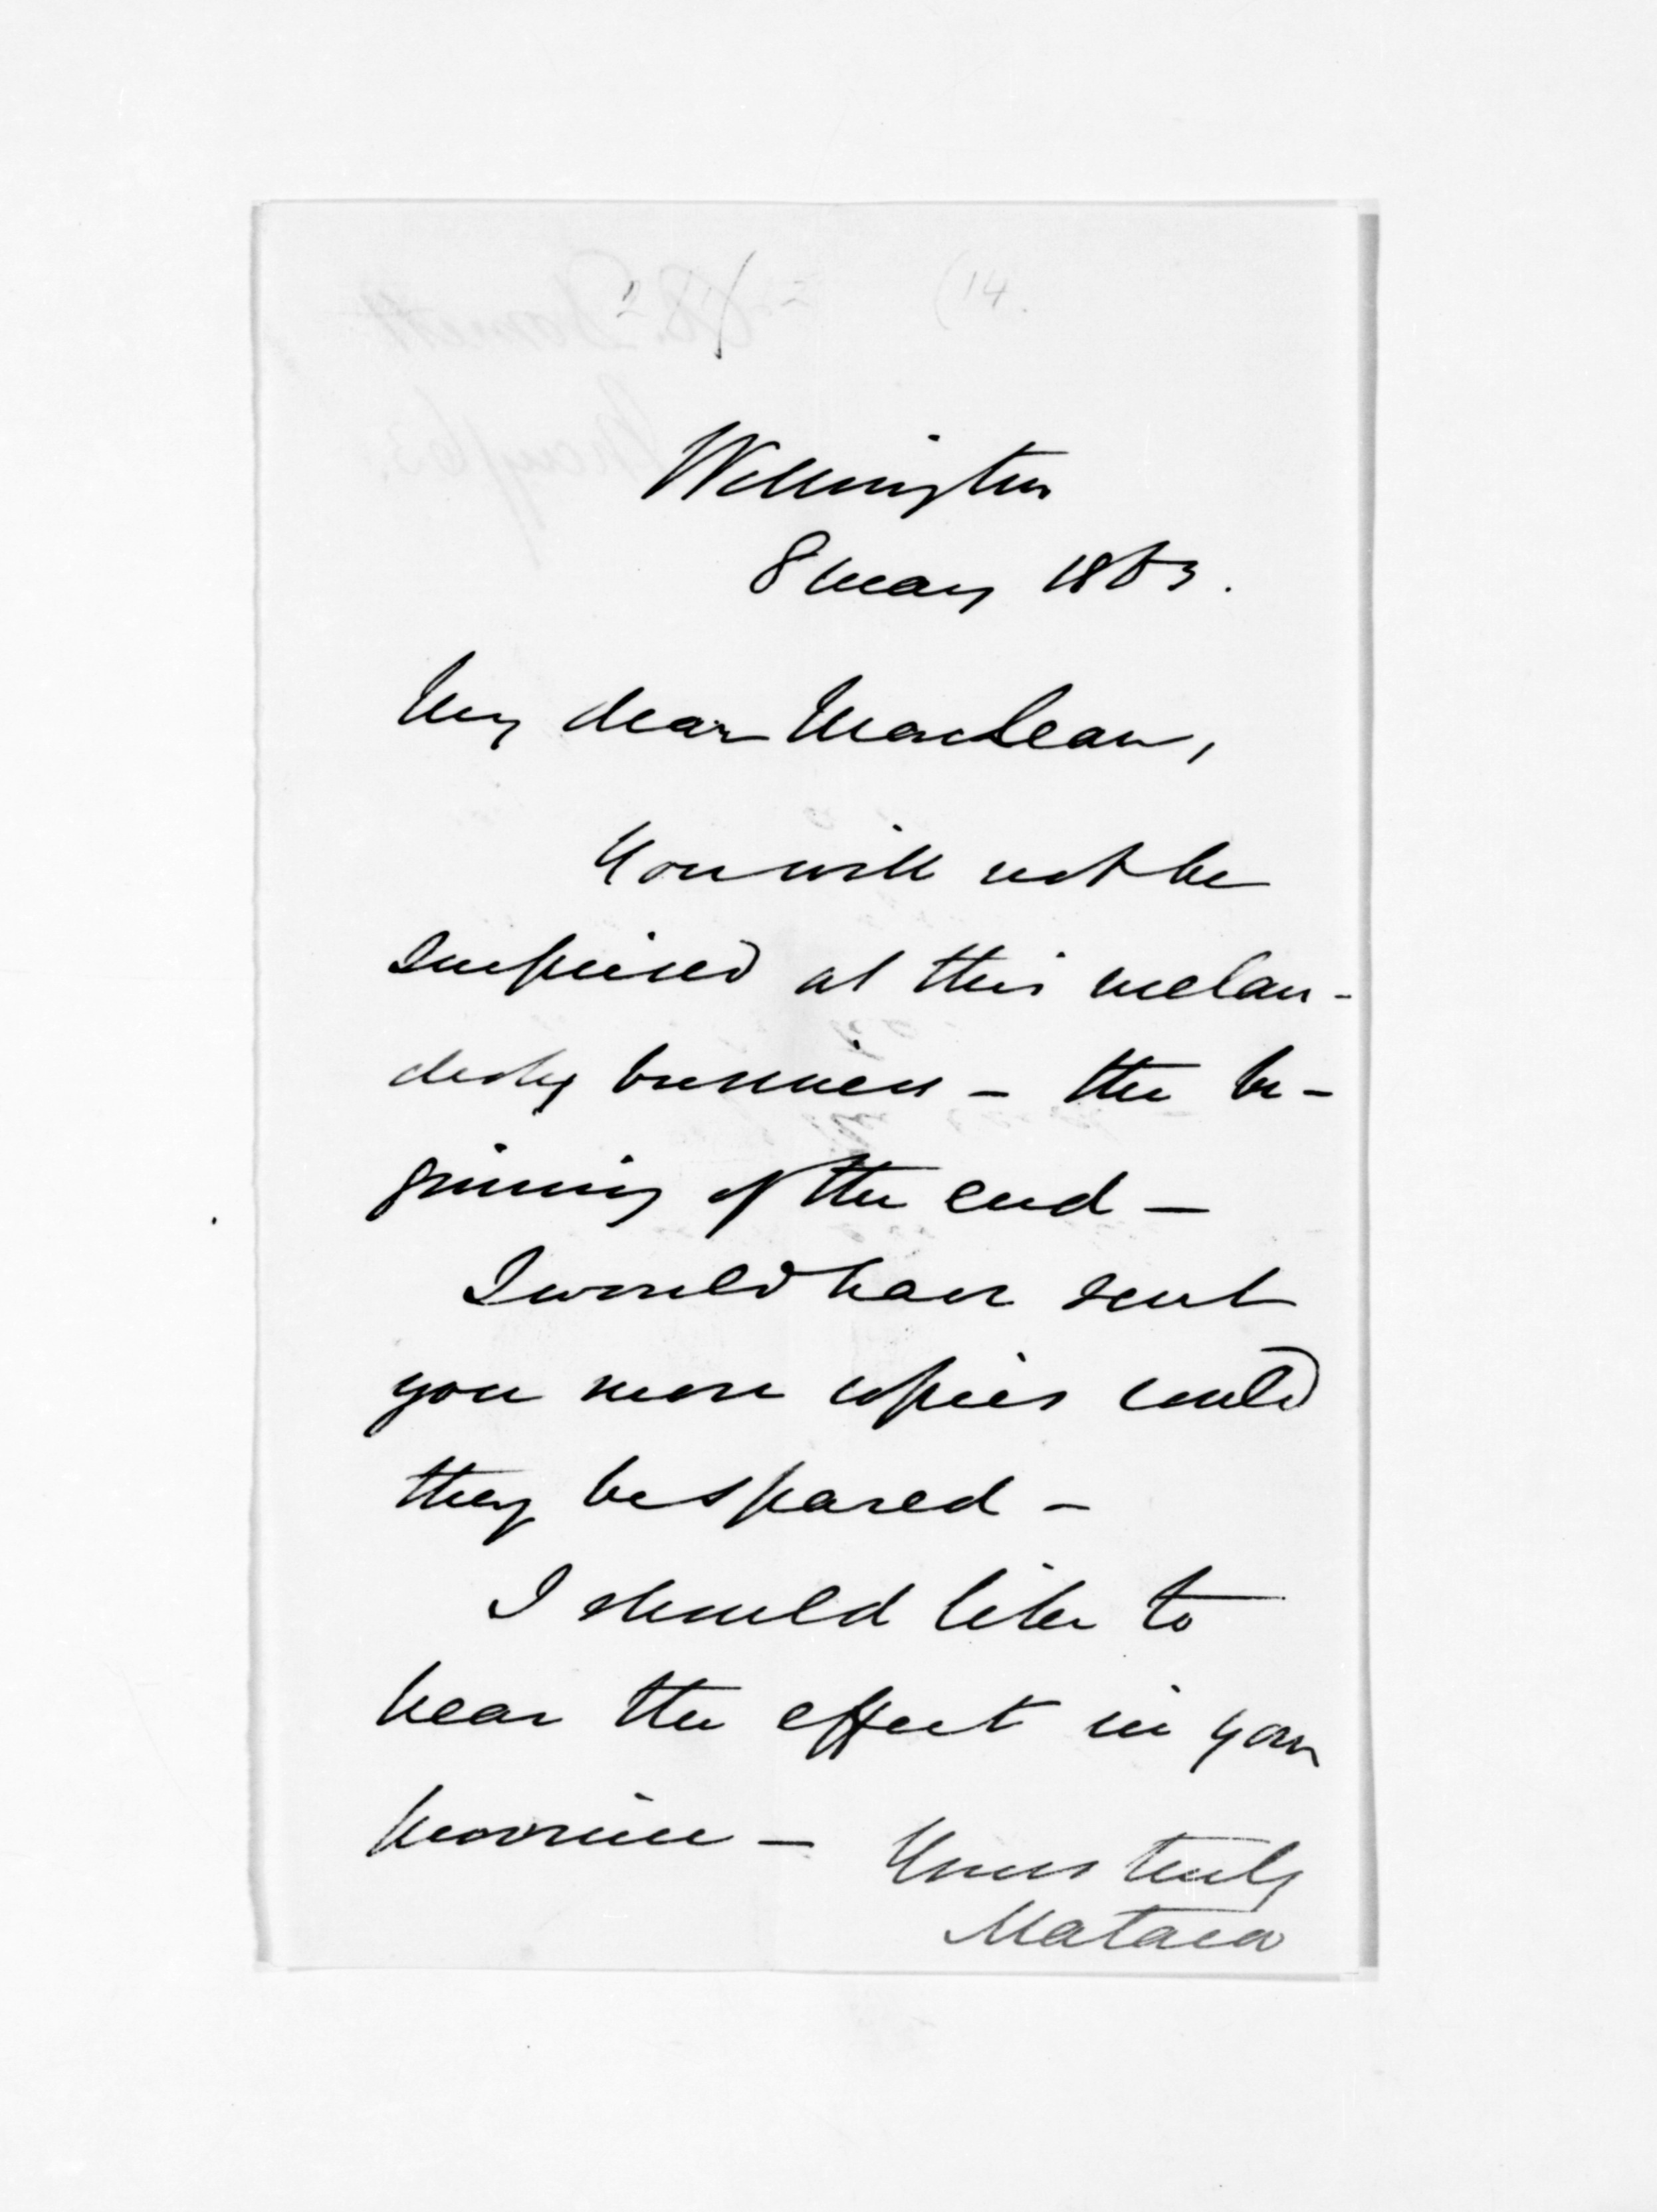 (14.
Wellington
8 May 1863.
My dear MacLean,
You will not be
surprised at this melan-
choly business – the be-
ginning of the end –
I would have sent
you more copies could
they be spared –
I should like to
hear the effect in your
province –
Yours truly